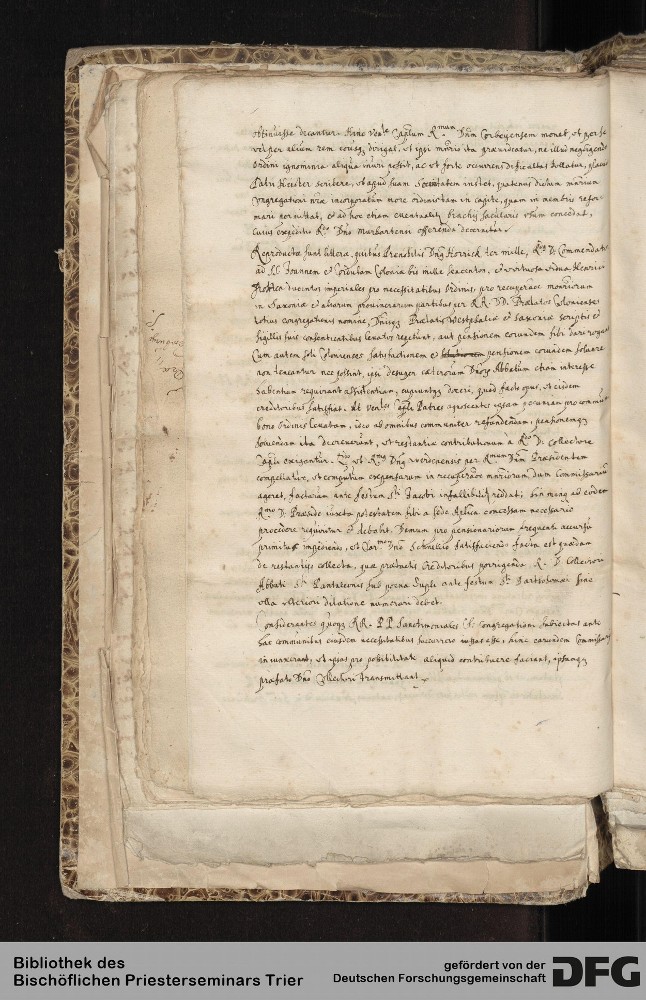 obtinuisse dicantur. Hinc Ven.le Cap.lum R.mum Dnm Corbeyensem monet, ut per se
vel per alium rem eousq dirigat, ut ipsi mrio ita praevideatur, ne illud negligendo
ordini ignominia aliqua inuri possit, ac ut forte occurrens difficultas tollatur, placuit
Patri scribere, ut apud suam Societatem instet, quatenus dictum mrium
congregationi nrae incorporatum more ordinis tam in capite, quam in membris refor-
mari permittat, et ad hoc etiam eventualiter brachij saecularis usum concedat,
cuius expeditio R.mo Dno Murhartensi offerenda decernitur.
Reproductae sunt litterae, quibus Praenobilis Dnus Horrich ter mille, R.dus D. Commendator
ad SS. Joannem et Cordulam Coloniae bis mille sexcentos, et virtuosa vidua Henrici
ducentos imperiales pro necessitatibus Ordinis, pro recuperatione mnriorum
in Saxonia et aliarum provinciarum partibus per RR. DD. Praelatos Colonienses
totius congregationis nomine, Dnisq Praelatis Westphaliae et Saxoniae scriptis et
sigillis suis consentientibus levatos repetunt, aut pensionem eorundem sibi dari rogant
Cum autem soli Colonienses satisfactionem et pensionem eorundem solvere
non teneantur nec possint, ipsi desuper caeterorum Dnorum Abbatum etiam interesse
habentium requirunt assistentiam, cupiuntq doceri, quid facto opus, ut eisdem
creditoribus satisfiat. At Ven.les Cap.li Patres agnoscentes ipsam pecuniam pro communi
bono ordinis levatam, ideo ab omnibus communiter refundendam, pensionemq
solvendam ita decreverunt, ut restantiae contributionum a R.do D. Collectore
Cap.li exigantur. 2.do ut R.mus Dnus Werdenensis per R.mum Dnm Praesidentem
compellatur, ut computum expensarum in recuperatione mnriorum, dum Commissarium
ageret, factarum ante festum S.ti Jacobi infallibiliter reddat; sin minus ab eodem
R.mo D. Praeside iuxta potestatem sibi a sede Ap.lica concessam necessario
procedere requiritur et debebit. Demum pro pensionariorum frequenti accursu
primitus impediendo, et Clar.mo Dno Schnellio satisfaciendo facta est quaedam
de restantijs collecta, quae praefatis Creditoribus porrigenda R. D. Collectori
Abbati S.ti Pantaleonis sub poena dupli ante festum S.ti Bartholomaei sine
ulla ulteriori dilatione numerari debet.
Considerantes quoq RR. PP. Sanctimoniales Congregationi subiectas ante
hac communibus eiusdem necessitatibus succurrere iussas esse, hinc earundem Commissarijs
iniunxerunt, ut ipsas pro possibilitate aliquid contribuere faciant, ipsumq
praefato Dno Collectori transmittant.
Bibliothek des
Bischöflichen Priesterseminars Trier
gefördert von der
Deutschen Forschungsgemeinschaft
DFG